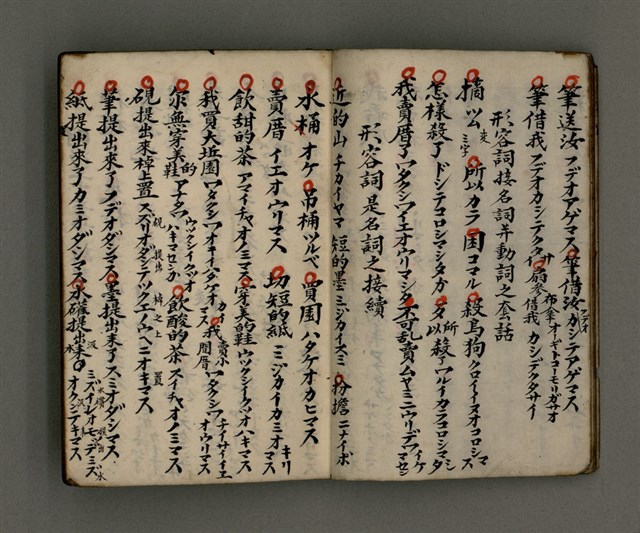 筆送汝 フデオアゲマス 筆借汝 フデオカシテアゲマス
筆借我 フデオカシテクダサイ 扇參借我 布傘オーギトコーモリガサオカシデクダサイ
形容詞接名詞并動詞之套話
摘 ツム 所以 カラ 困 コマル 殺烏狗 クロイイヌオコロシマス
怎樣殺了 ドシテコロシマシタカ 所以殺了 ワルイカラコロシマシタ
我賣厝了 ワタクシワイエオウリマシタ 不可乱賣 ムヤミニウリデワイケマセン
形容詞是名詞之接續
近的山 チカイヤマ 短的墨 ミジカイスミ 扮擔 ニナイボ
水桶 オケ 吊桶 ツルベ 買園 ハタケオカヒマス
賣厝 イエオウリマス 切短的紙 ミジカイカミオキリマス
飲甜的茶 アマイチャオノミマス 穿美的鞋 ウツクシイクツオハキマス
我買大坵園 ワタクシワオオイハタケオカイマス 我賣小間厝 ワタクシワチイサイイエオウリマス
尔無穿美的鞋 アナタワハキマセンカ 飲酸的茶 スイチャオノミマス
硯提出來棹上置 スズリオダシテツクエノウヘニオキマス
筆提出來了 フデオダシマス 墨提出來了 スミオダシマス
紙提出來了 カミオダシマス 水罐提出來